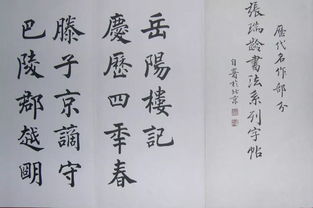 歷代名作部分
張瑞齡書法系列字帖
自書於北京
岳陽樓記
慶歷四年春
滕子京謫守
巴陵郡越明